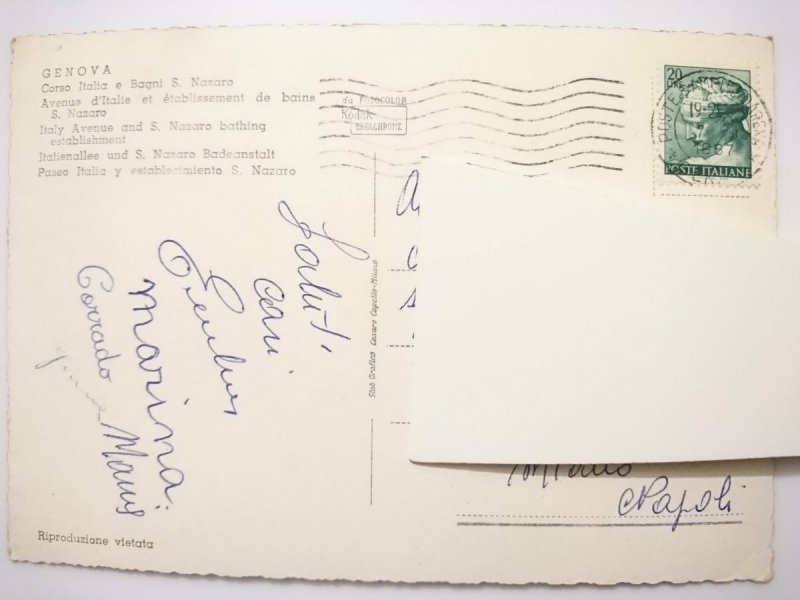 GENOVA
Corso Italia e Bagni S. Nazaro
Avenue d'Italie et établissement de bains
S. Nazaro
Italy Avenue and S. Nazaro bathing
establishment
Italienallee und S. Nazaro Badeanstalt
Paseo Italia y establecimiento S. Nazaro
da FOTOCOLOR
Kodak
EKTACHROME
20
POSTE ITALIANE
Saluti
cari
Marina
Corrado
Stab. Grafico Cesare Capello-Milano
Napoli
Riproduzione vietata